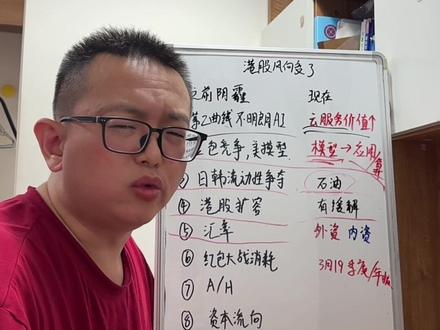 港股风向变了
之前阴霾 现在
第二曲线不明朗AI 云服务价值↑
包竞争,美模型. 模型→应用/
③ 日韩流动性争夺 石油
④ 港股扩容 有缓解
⑤ 汇率 外资 内资
⑥ 红包大战消耗 3月19 季度/年报
⑦ A/H
⑧ 资本流向